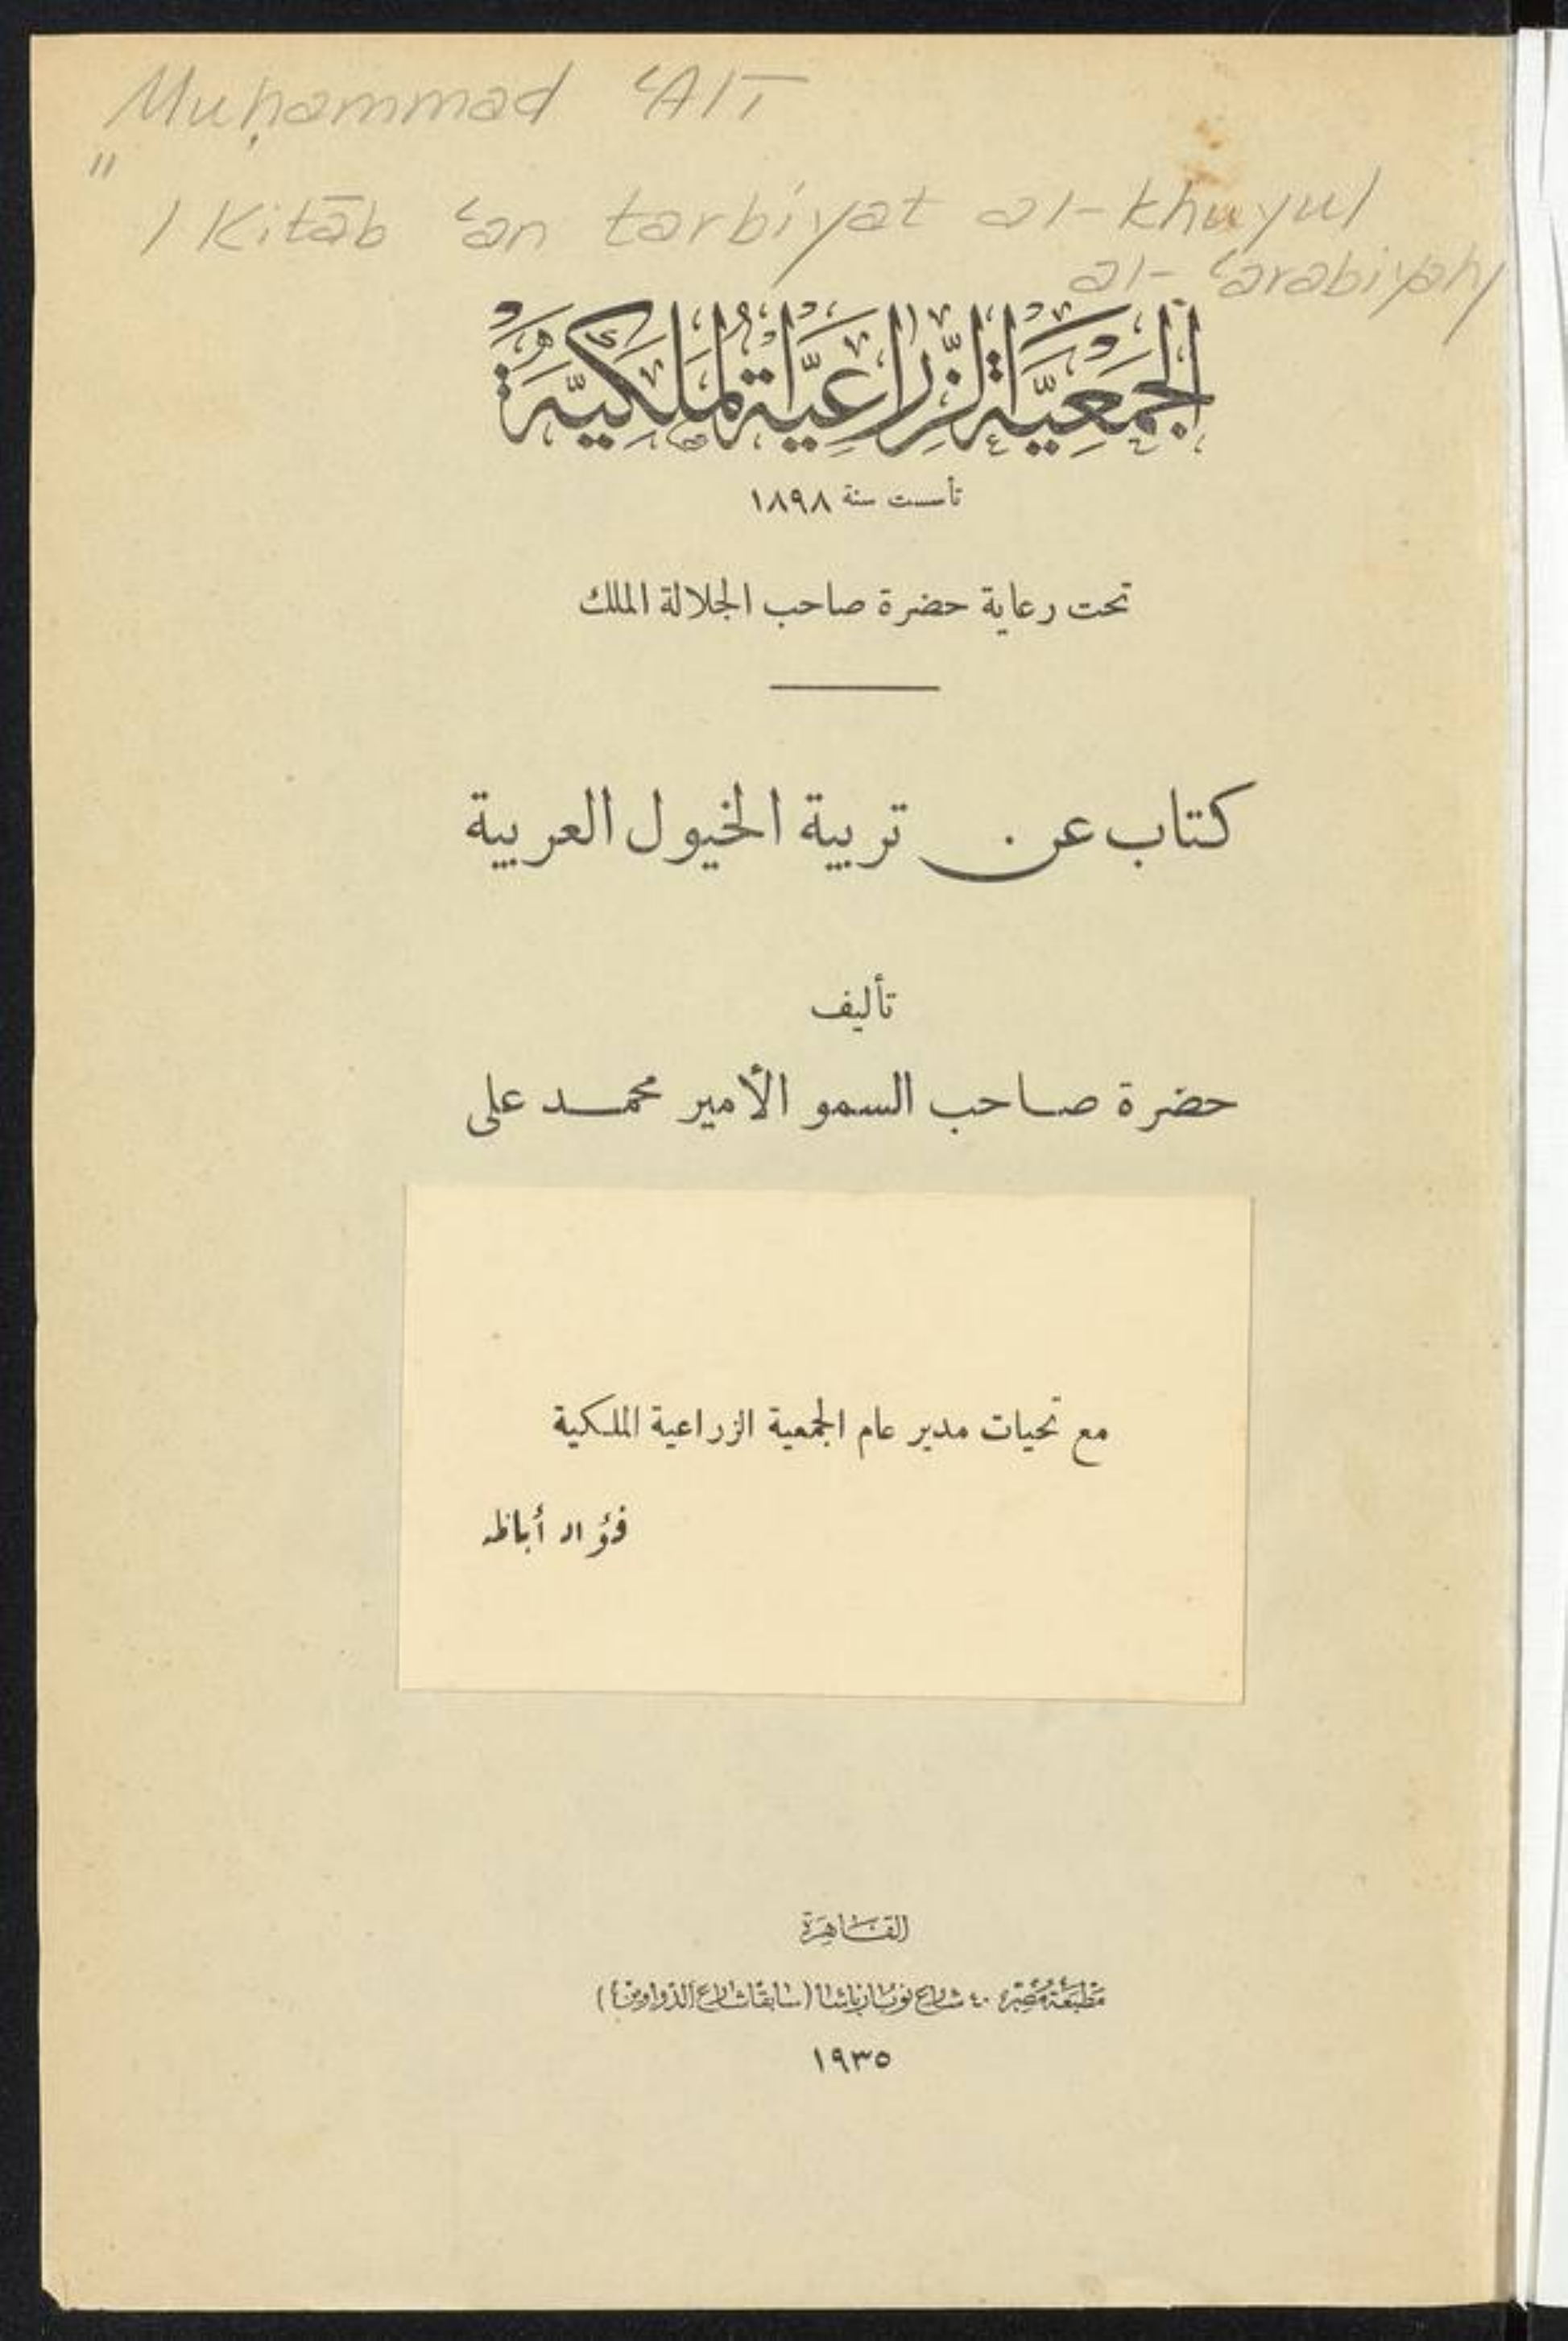 Muḥammad ʿAlī
"
/ Kitāb ʿan tarbiyat al-khuyul
al-ʿarabiyah/
الجَمْعِيَّة الزِّرَاعِيَّة المَلَكِيَّة
تأسست سنة ١٨٩٨
تحت رعاية حضرة صاحب الجلالة الملك
كتاب عن تربية الخيول العربية
تأليف
حضرة صاحب السمو الأمير محمد على
مع تحيات مدير عام الجمعية الزراعية الملكية
فؤاد أباظه
القاهرة
مطبعة مصر ٤٠ شارع نوبار باشا (سابقا شارع الدواوين)
١٩٣٥